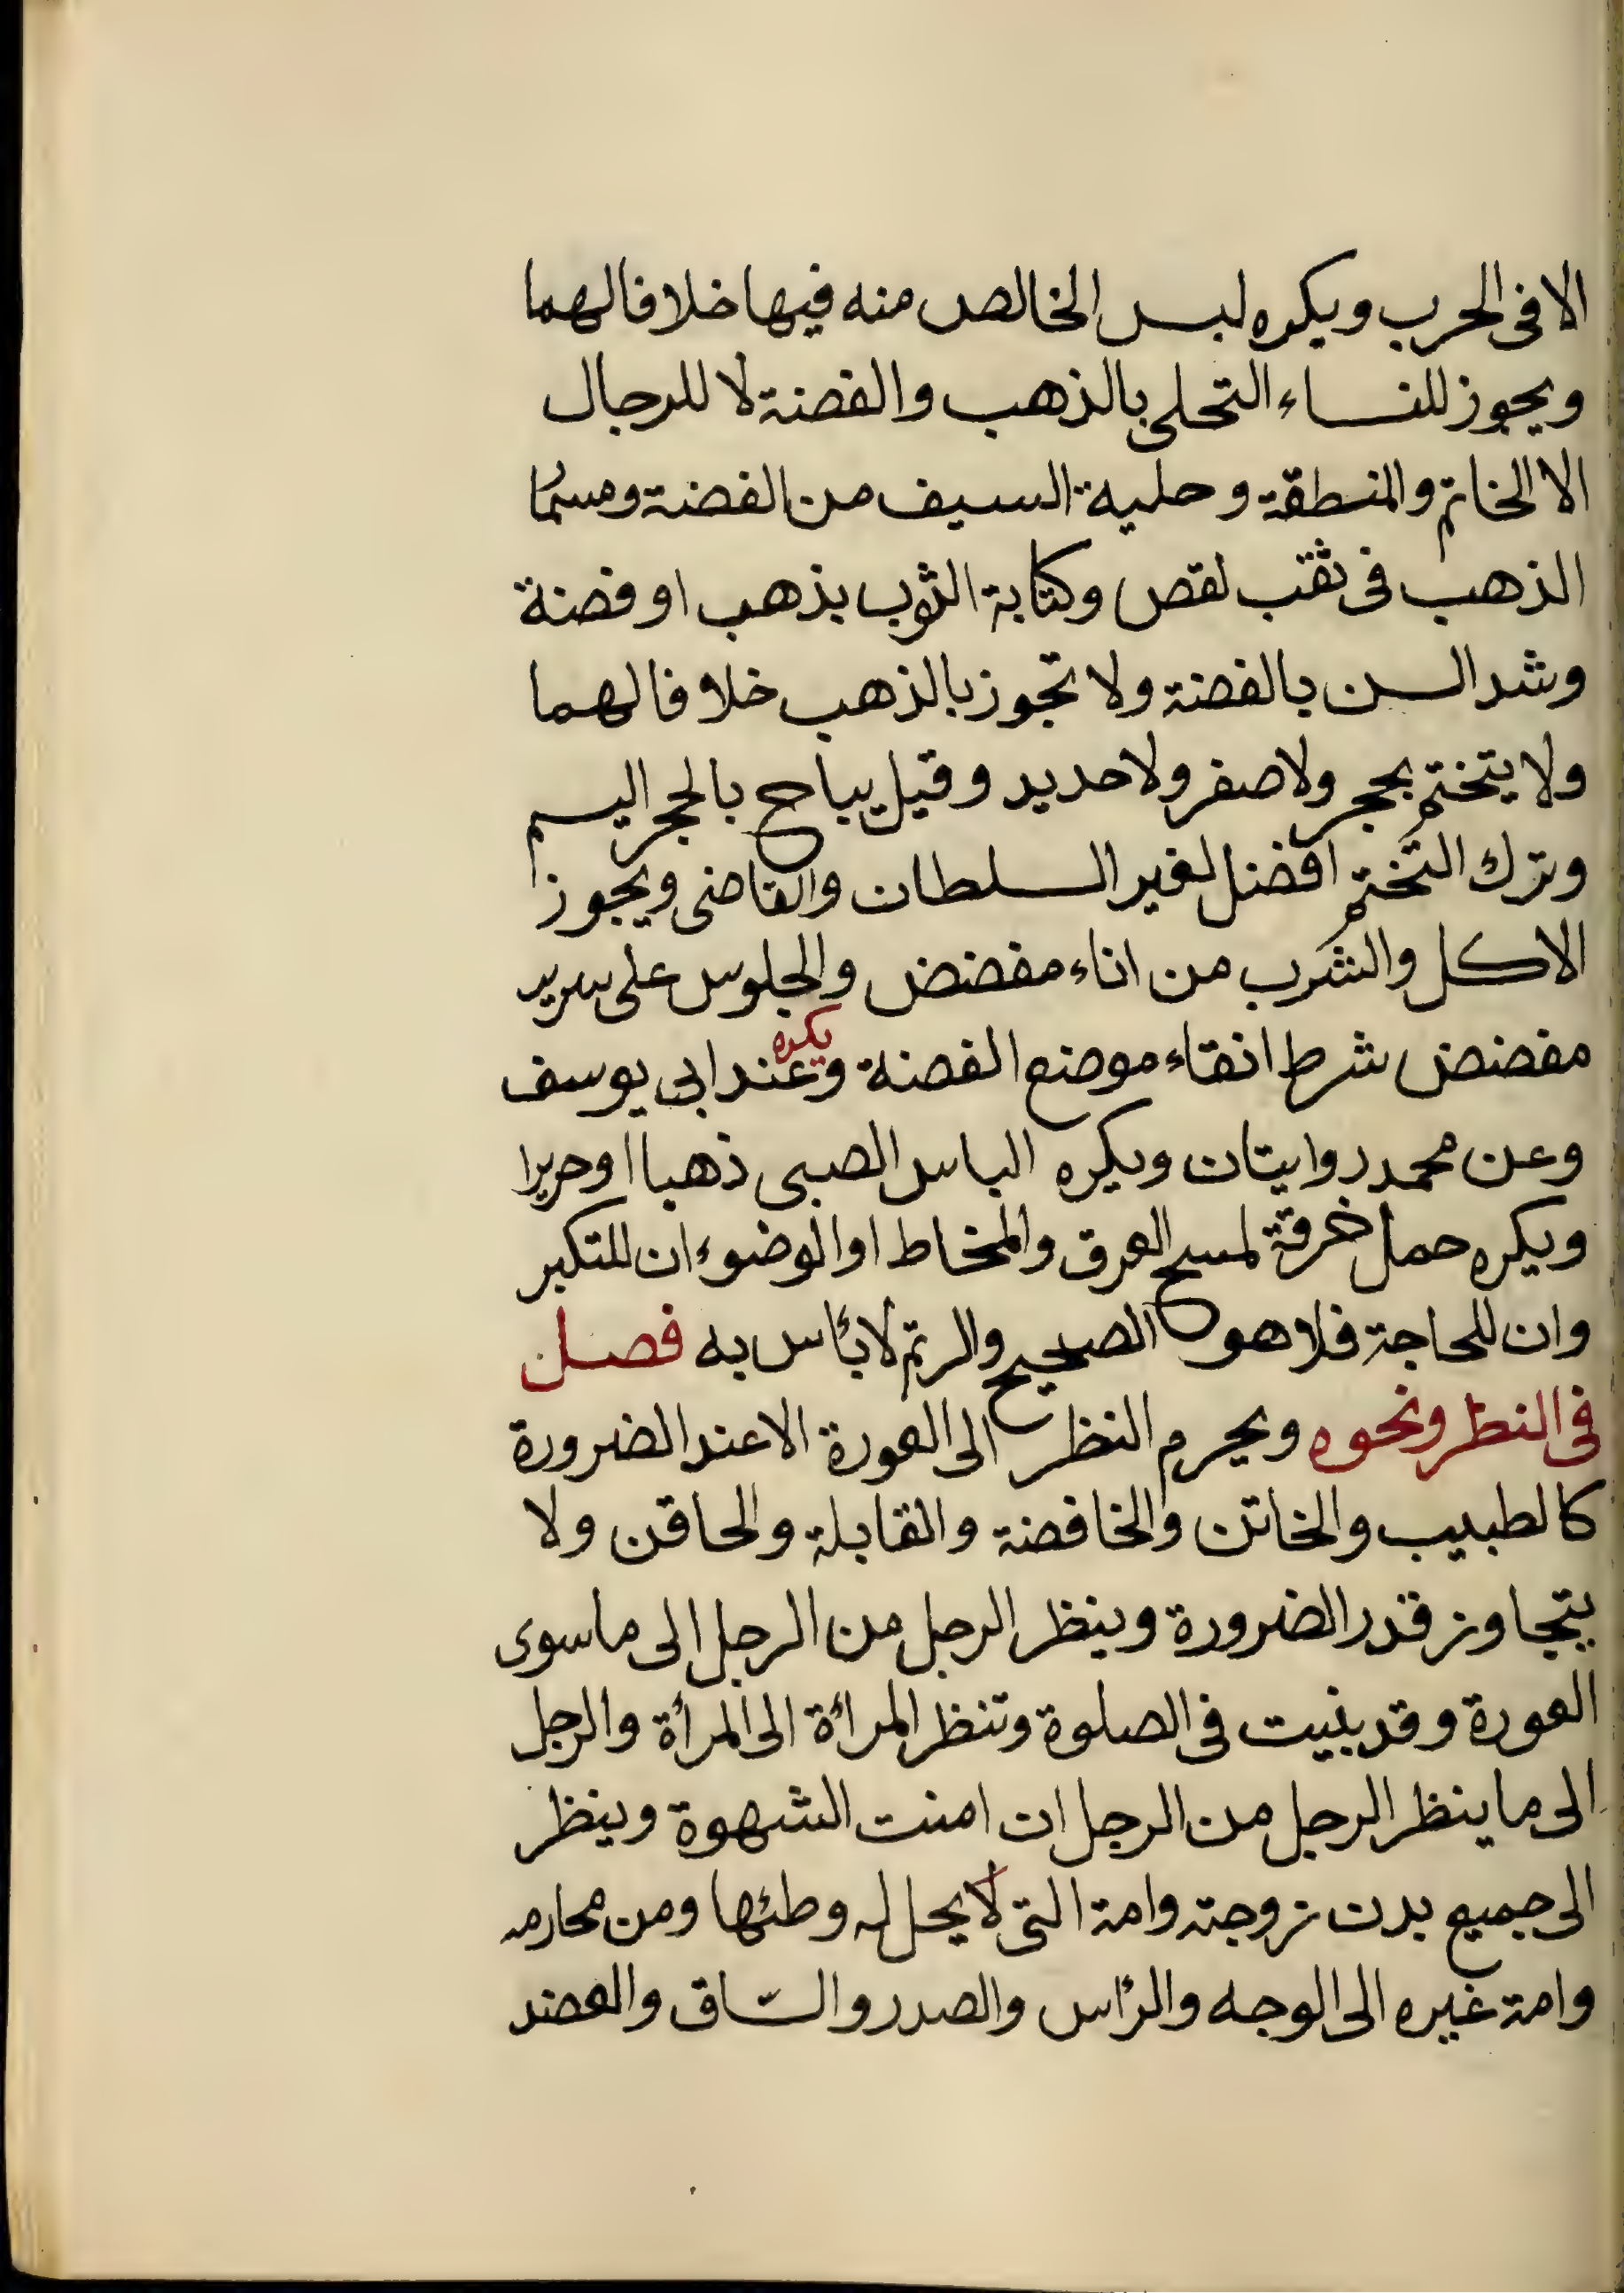 الا فى الحرب ويكره لبس الخالص منه فيها خلافا لهما
ويجوز للنساء التحلى بالذهب والفضة لا للرجال
الا الخاتم والمنطقة وحلية السيف من الفضة ومسمار
الذهب فى ثقب لفص وكتابة الثوب بذهب او فضة
وشد السن بالفضة ولا تجوز بالذهب خلافا لهما
ولا يتختم بحجر ولا صفر ولا حديد وقيل يباح بالحجر اليسم
وترك التختم افضل لغير السلطان والقاضى ويجوز
الاكل والشرب من اناء مفضض والجلوس على سرير
مفضض شرط اتقاء موضع الفضة ويكره عند ابى يوسف
وعن محمد روايتان ويكره الباس الصبى ذهبا اوحريرا
ويكره حمل خرقة لمسح العرق والمخاط او الوضوء ان للتكبر
وان للحاجة فلا هو الصحيح والرتم لا بأس به فصل
فى النظر ونحوه ويحرم النظر الى العورة الا عند الضرورة
كالطبيب والخاتن والخافضة والقابلة والحاقن ولا
يتجاوز قدر الضرورة وينظر الرجل من الرجل الى ما سوى
العورة وقد بينت فى الصلوة وتنظر المرأة الى المرأة والرجل
الى ما ينظر الرجل من الرجل ان امنت الشهوة وينظر
الى جميع بدن زوجته وامة التى لا يحل له وطئها ومن محارمه
وامة غيره الى الوجه والرأس والصدر والساق والعضد